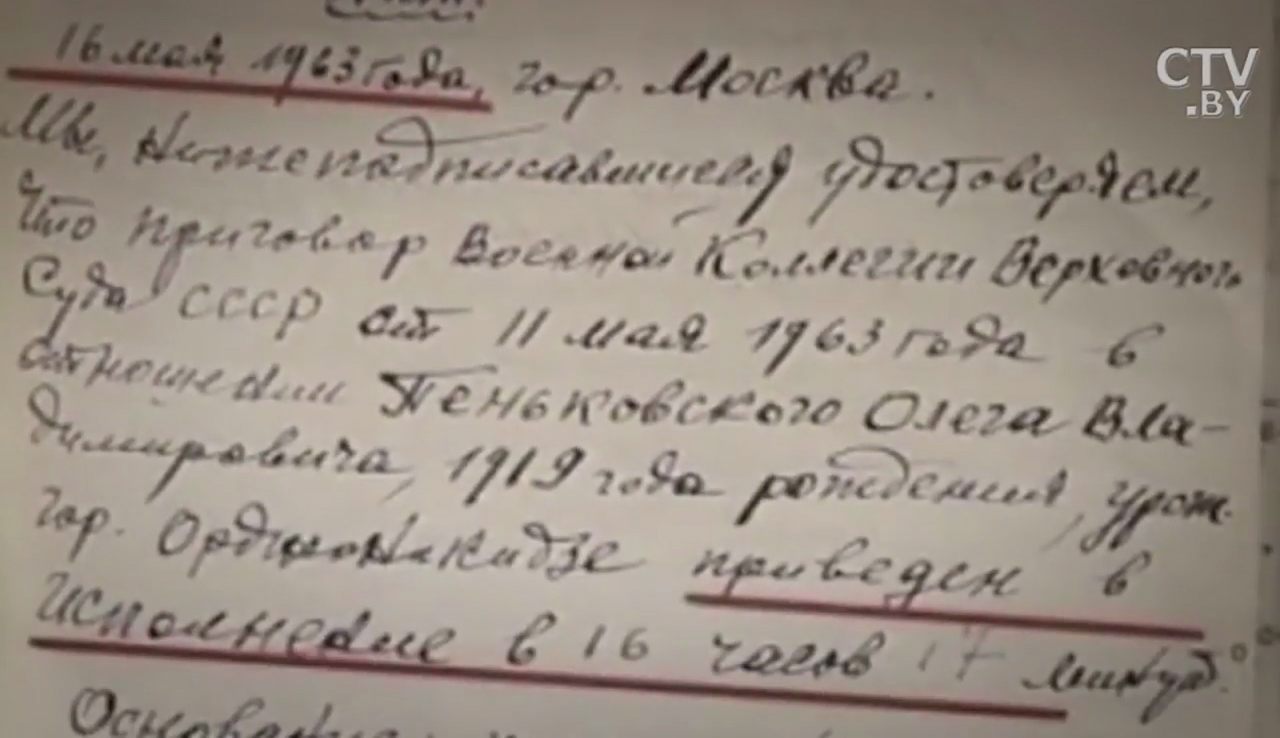 CTV
.BY
16 мая 1963 года, гор. Москва.
Мы, нижеподписавшиеся удостоверяем,
что приговор Военной Коллегии Верховного
Суда СССР от 11 мая 1963 года в
отношении Пеньковского Олега Вла-
димировича, 1919 года рождения, урож.
гор. Орджоникидзе приведен в
исполнение в 16 часов 17 минут.